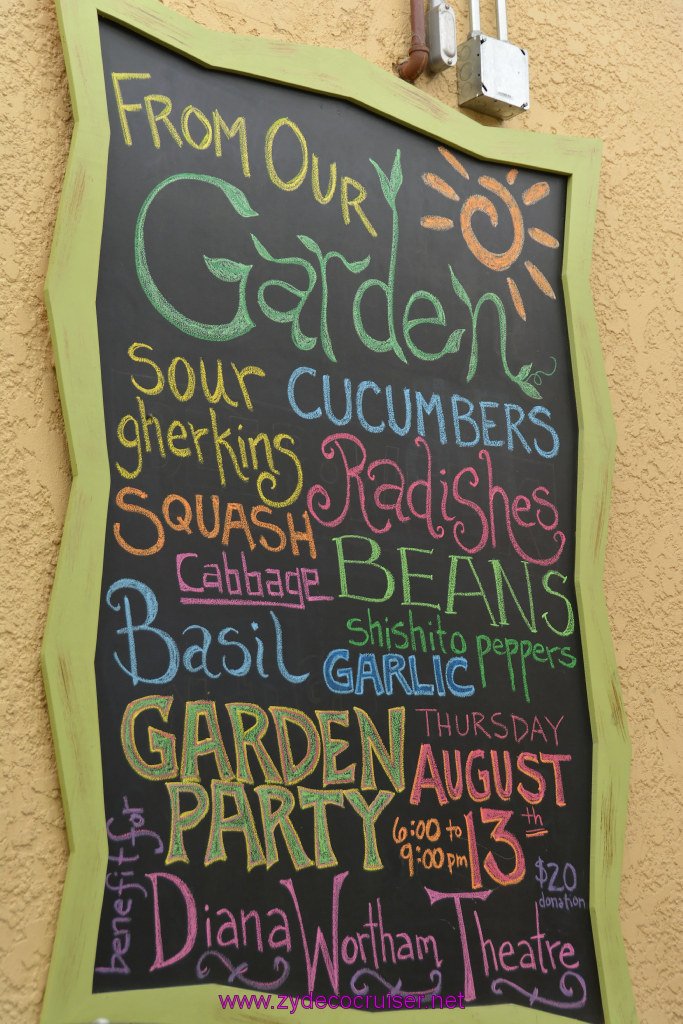 FROM OUR
Garden
sour gherkins
CUCUMBERS
Radishes
SQUASH
Cabbage
BEANS
Basil
shishito peppers
GARLIC
GARDEN PARTY
THURSDAY
AUGUST
13th
6:00 to
9:00pm
$20
donation
benefit for
Diana Wortham Theatre
www.zydecocruiser.net